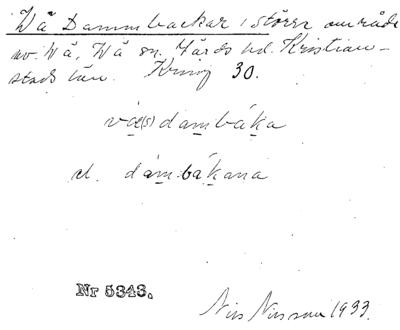 Wå Dammbackar, större område
nv. Wå, Wå sn. Gärds hd. Kristian-
stads län. Kring 30.
vå(s)dambáka
el. dámbákana
Nr 5343.
Nils Nilsson 1933.